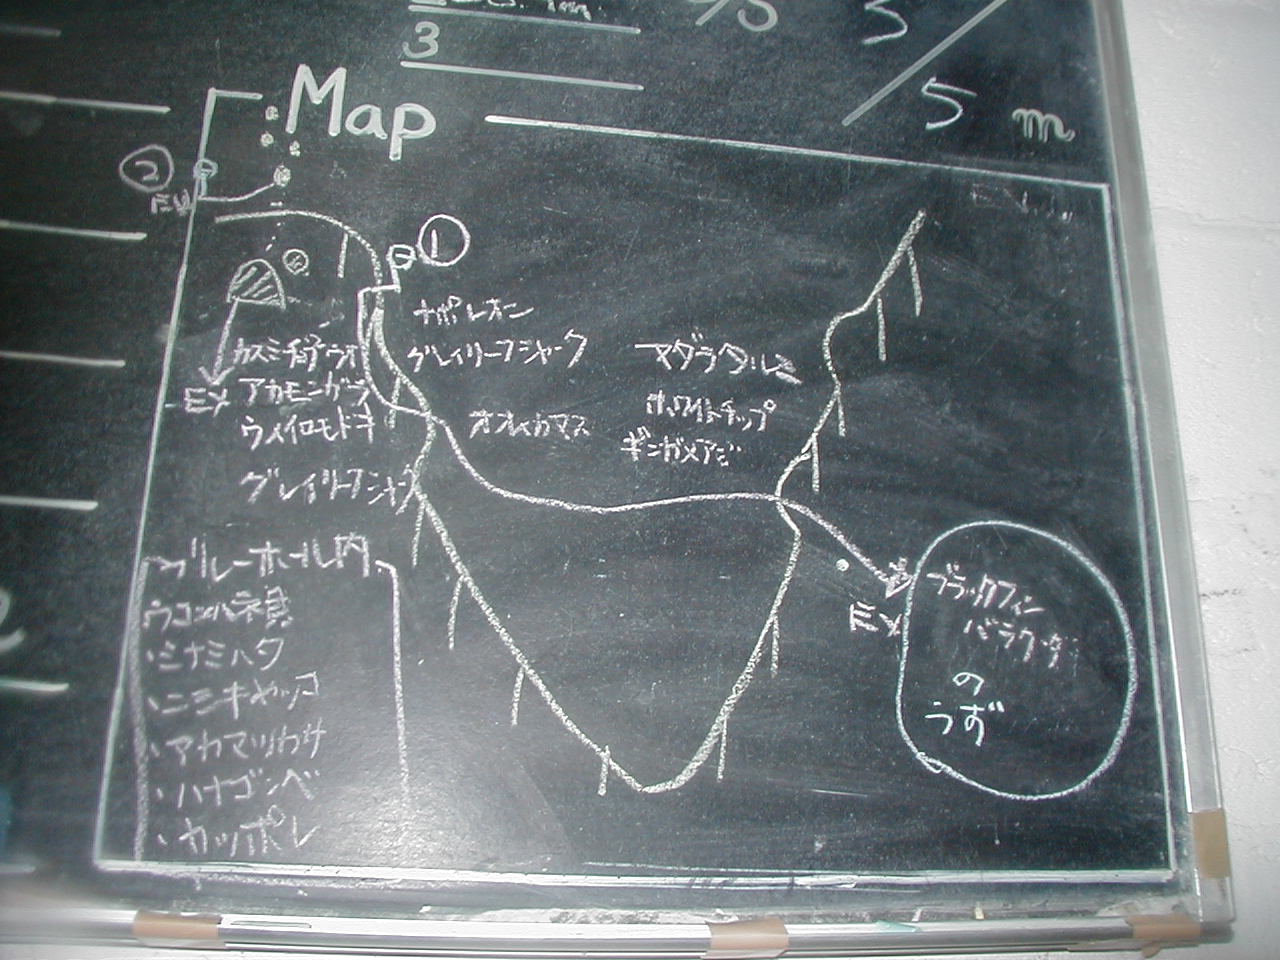 3
5
5 m
Map
②
EX
①
ナポレオン
グレイリーフシャーク
カスミチョウチョウウオ
EX
アカモンガラ
ウメイロモドキ
グレイリーフシャーク
オオメカマス
マダラタルミ
ホワイトチップ
ギンガメアジ
ブルーホール内
ウコンハネ貝
・ミナミハタ
・ニシキヤッコ
・アカマツカサ
・ハナゴンベ
・カッポレ
EX
ブラックフィン
バラクーダ
の
うず